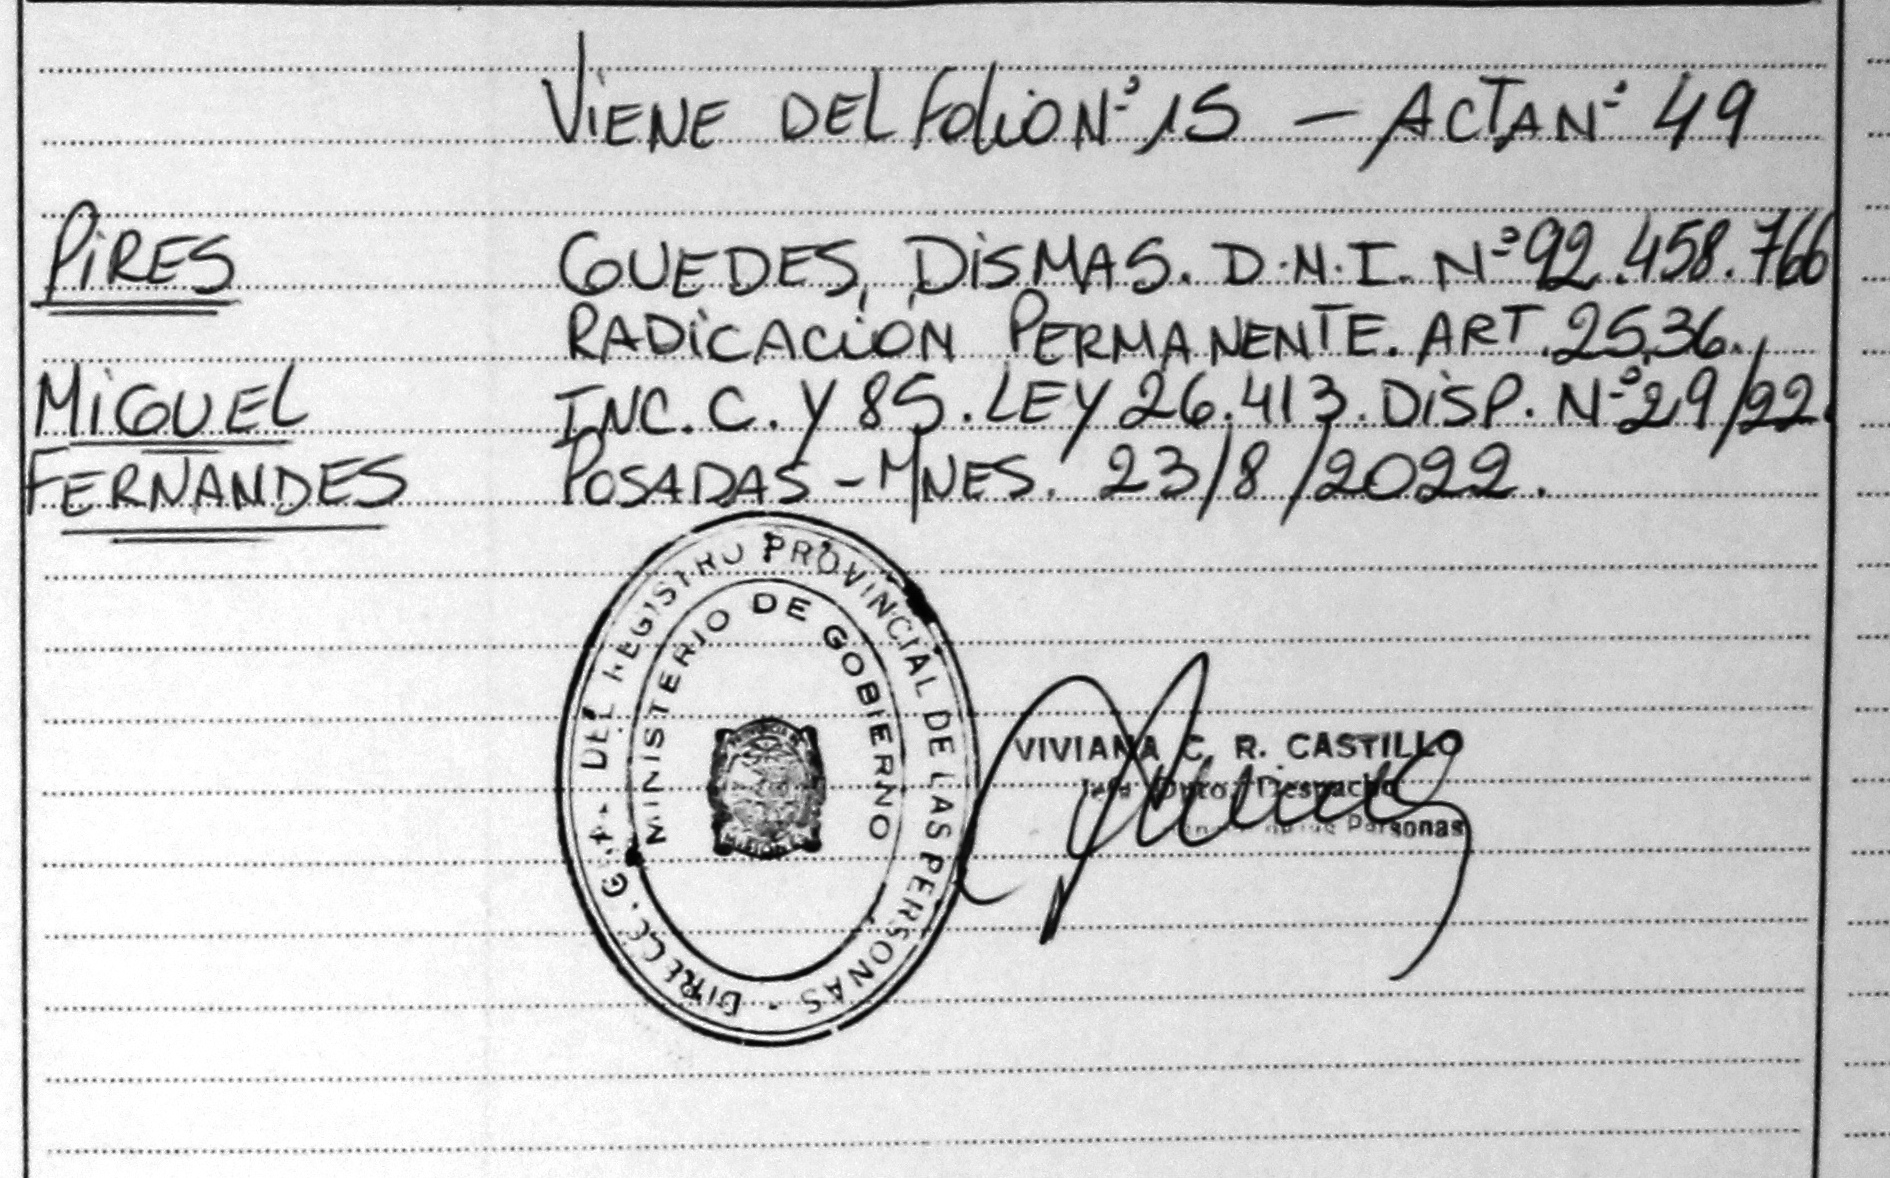 VIENE DEL FOLIO Nº 15 — ACTA Nº 49
PIRES
GUEDES, DISMAS. D.N.I. Nº 92.458.766
RADICACIÓN PERMANENTE. ART. 25,36.,
MIGUEL
INC. C. Y 85. LEY 26.413. DISP. Nº 29/22.
FERNANDES
POSADAS - MNES. 23/8/2022.
DIRECC. GRAL. DEL REGISTRO PROVINCIAL DE LAS PERSONAS
MINISTERIO DE GOBIERNO
VIVIANA C. R. CASTILLO
Dpto. Despacho
Personas